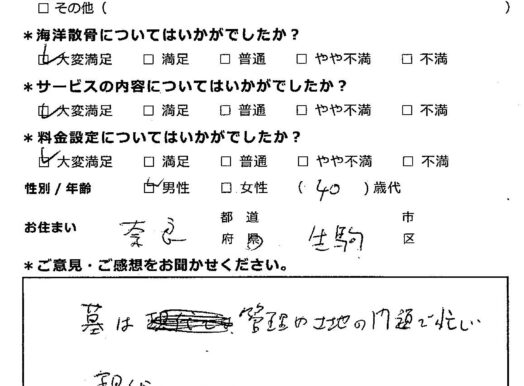 □ その他（　　　）
＊海洋散骨についてはいかがでしたか？
☑ 大変満足 □ 満足 □ 普通 □ やや不満 □ 不満
＊サービスの内容についてはいかがでしたか？
☑ 大変満足 □ 満足 □ 普通 □ やや不満 □ 不満
＊料金設定についてはいかがでしたか？
☑ 大変満足 □ 満足 □ 普通 □ やや不満 □ 不満
性別 / 年齢 ☑ 男性 □ 女性 （ 40 ）歳代
お住まい 奈良 都 道 府 県 生駒 市 区
＊ご意見・ご感想をお聞かせください。
墓は 管理や土地の問題で忙しい
現代